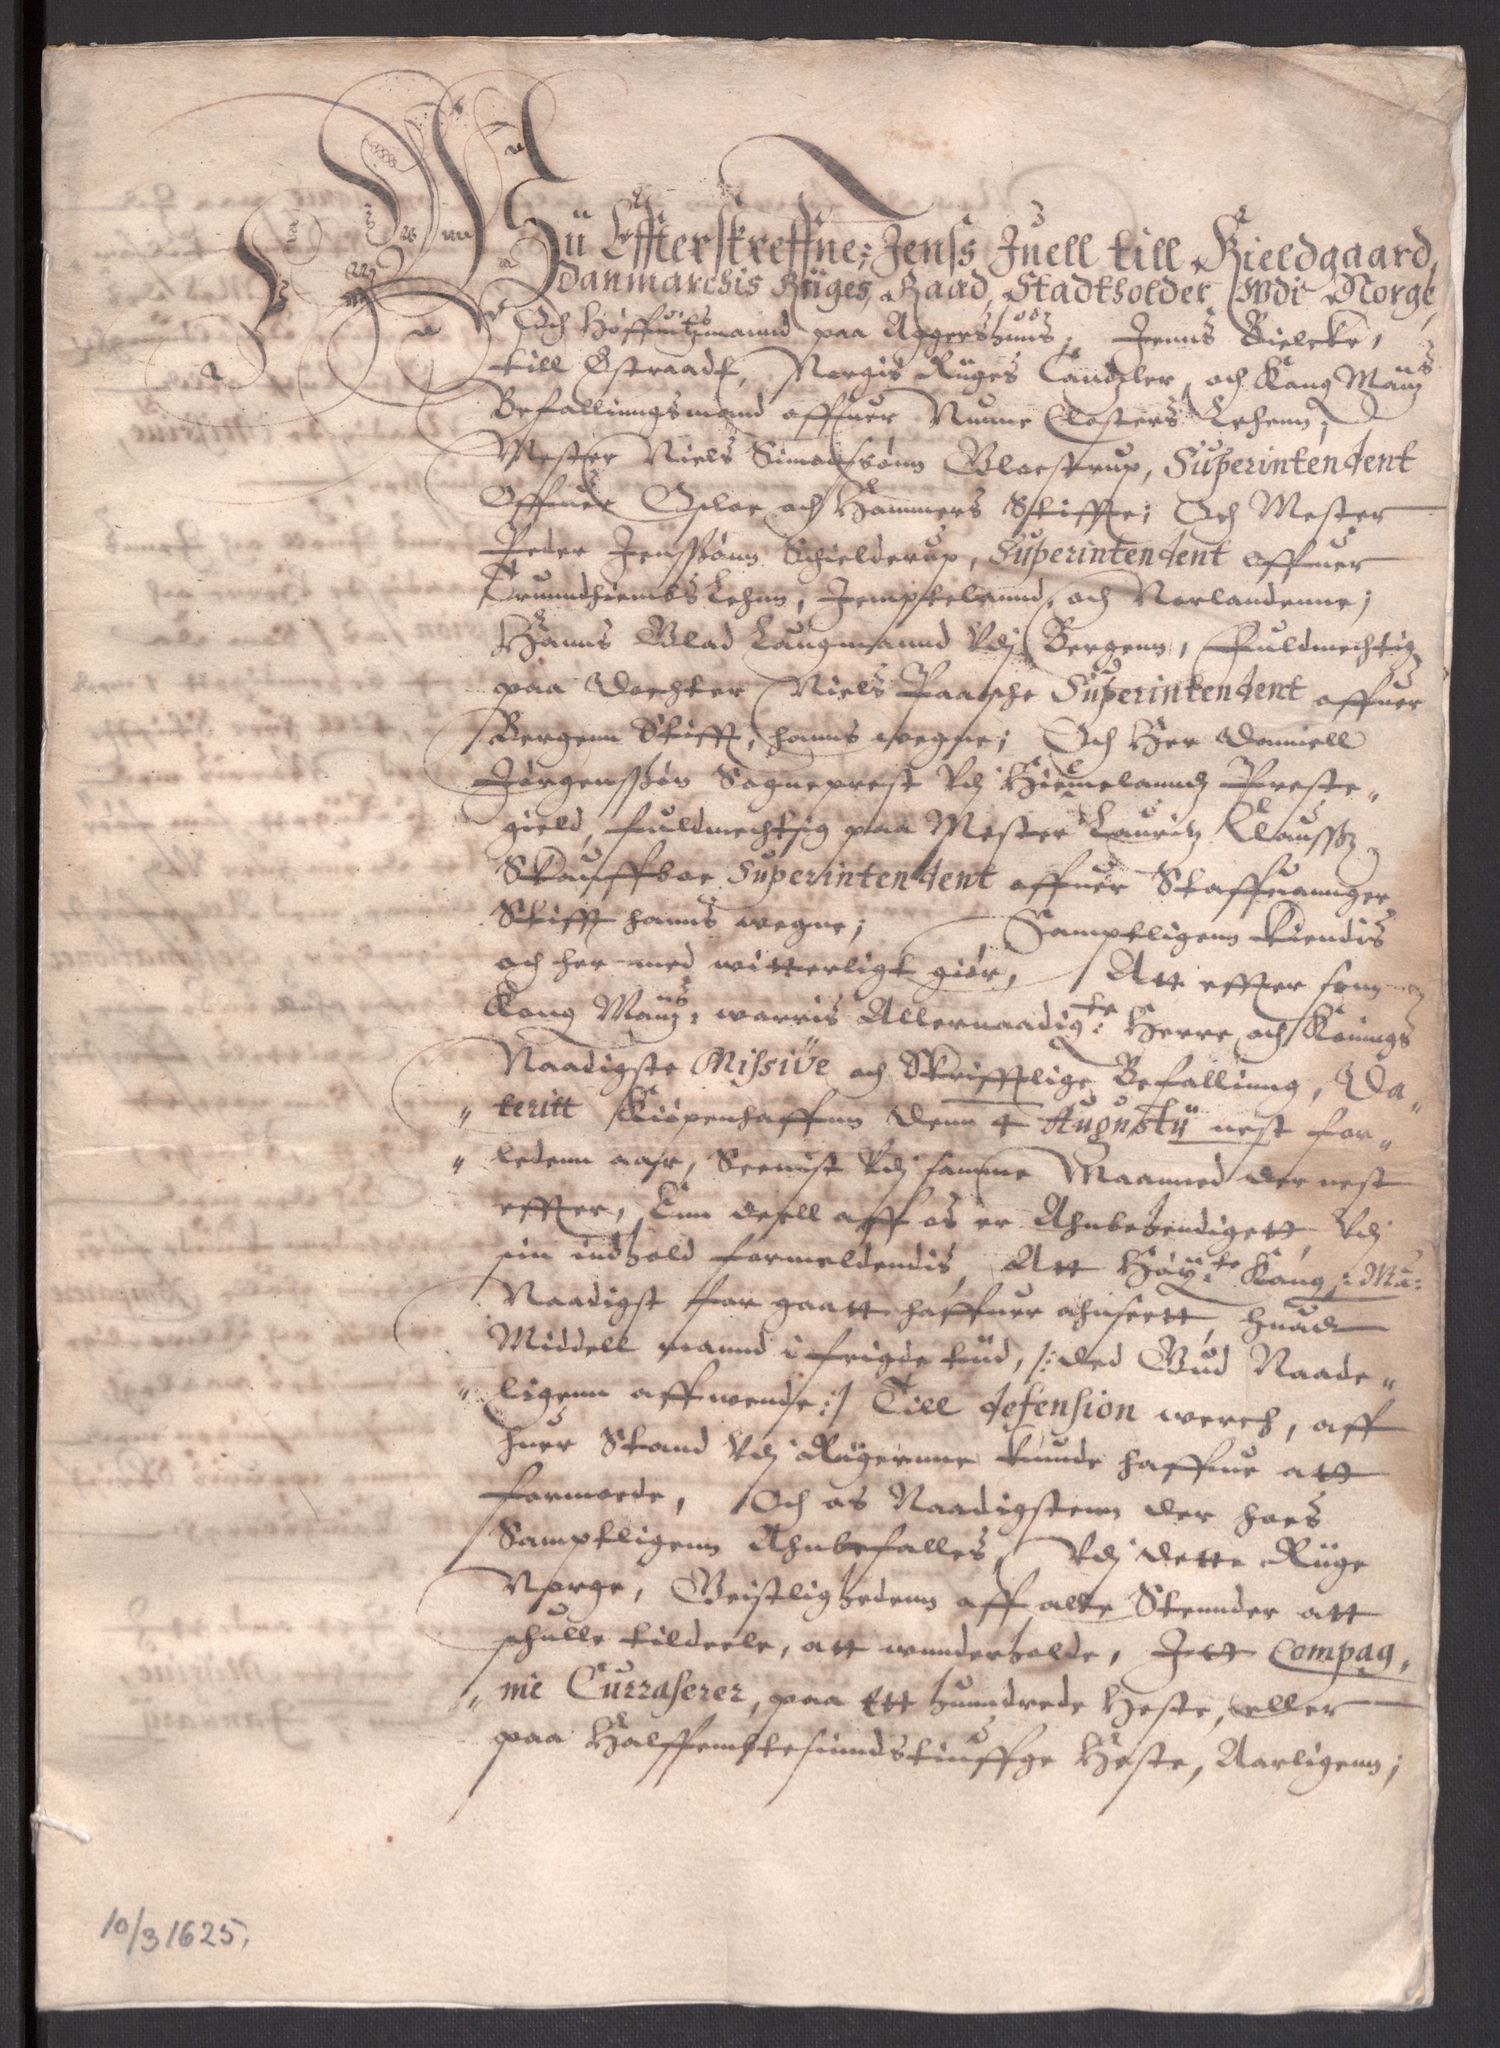 Wii Effterskreffne; Jenss Juell till Kieldgaard,
Danmarchis Riiges, Raad, Stadtholder Wdi Norge,
Och Höffuitzmannd paa Aggershuus; Jenns Bielcke,
till Østraadt, Norgis Riiges Cantzler, och Kong: Maytz
Befallinngsmand offuer Nunne Closters Lehenn;
Mester Niels Simonssønn Glostrup, Superintendent
Offuer Opsloe och Hammers Stiffte; Och Mester
Peder Jenssønn Schielderup, Superintendent offuer
Trunndhiembs Lehnn, Jempteland, och Norlandenne;
Hanns Glad Laugmannd Vdj Bergenn, Fuldmechtig
paa Docter Niels Paasche Superintendent offuer
Bergenn Stifft, hanns wegne; Och Her Daniell
Jørgenssøn Sogneprest Vdj Hiemelanndz Preste„
gield, fuldmechtig paa Mester Lauritz Claussøn
Skauffboe Superintendent offuer Staffuannger
Stifft hanns wegne; Samptligenn kiendis
och her med witterligt giør, Att effter som
Kong Maytz: worris Allernaadigste: Herre och Konings
Naadigste Missive och Skrifftlige Befallinng, Da„
„ teritt Kiøpenhaffnn denn 4 Augusty nest for„
„ ledenn aar, Seenist Vdj samme Maanned der nest
effter, Enn deell aff os er Ahnbehendigett, Vdj
sin indhold formeldendis, Att Høyste: Kong: Ma:
Naadigst for gaatt haffuer ahnseett, huad
Middell mannd i feigde tiid, /: ded Gud Naade„
„ ligenn affwende :/ Till defension werch, aff
huer Stand Vdj Rigernne kunde haffue att
formode, Och os Naadigstenn der hoes
Samptligenn Ahnbefalles, Vdj dette Riige
Norge, Geistlighedenn aff alle Stennder att
schulle tildeele, att wnderholde, Jtt Compag„
„ nie Curraserer, paa Ett hunndrede Heste, eller
paa Halffembtesiindstiuffge Heste, Aarligenn;
10/3 1625.